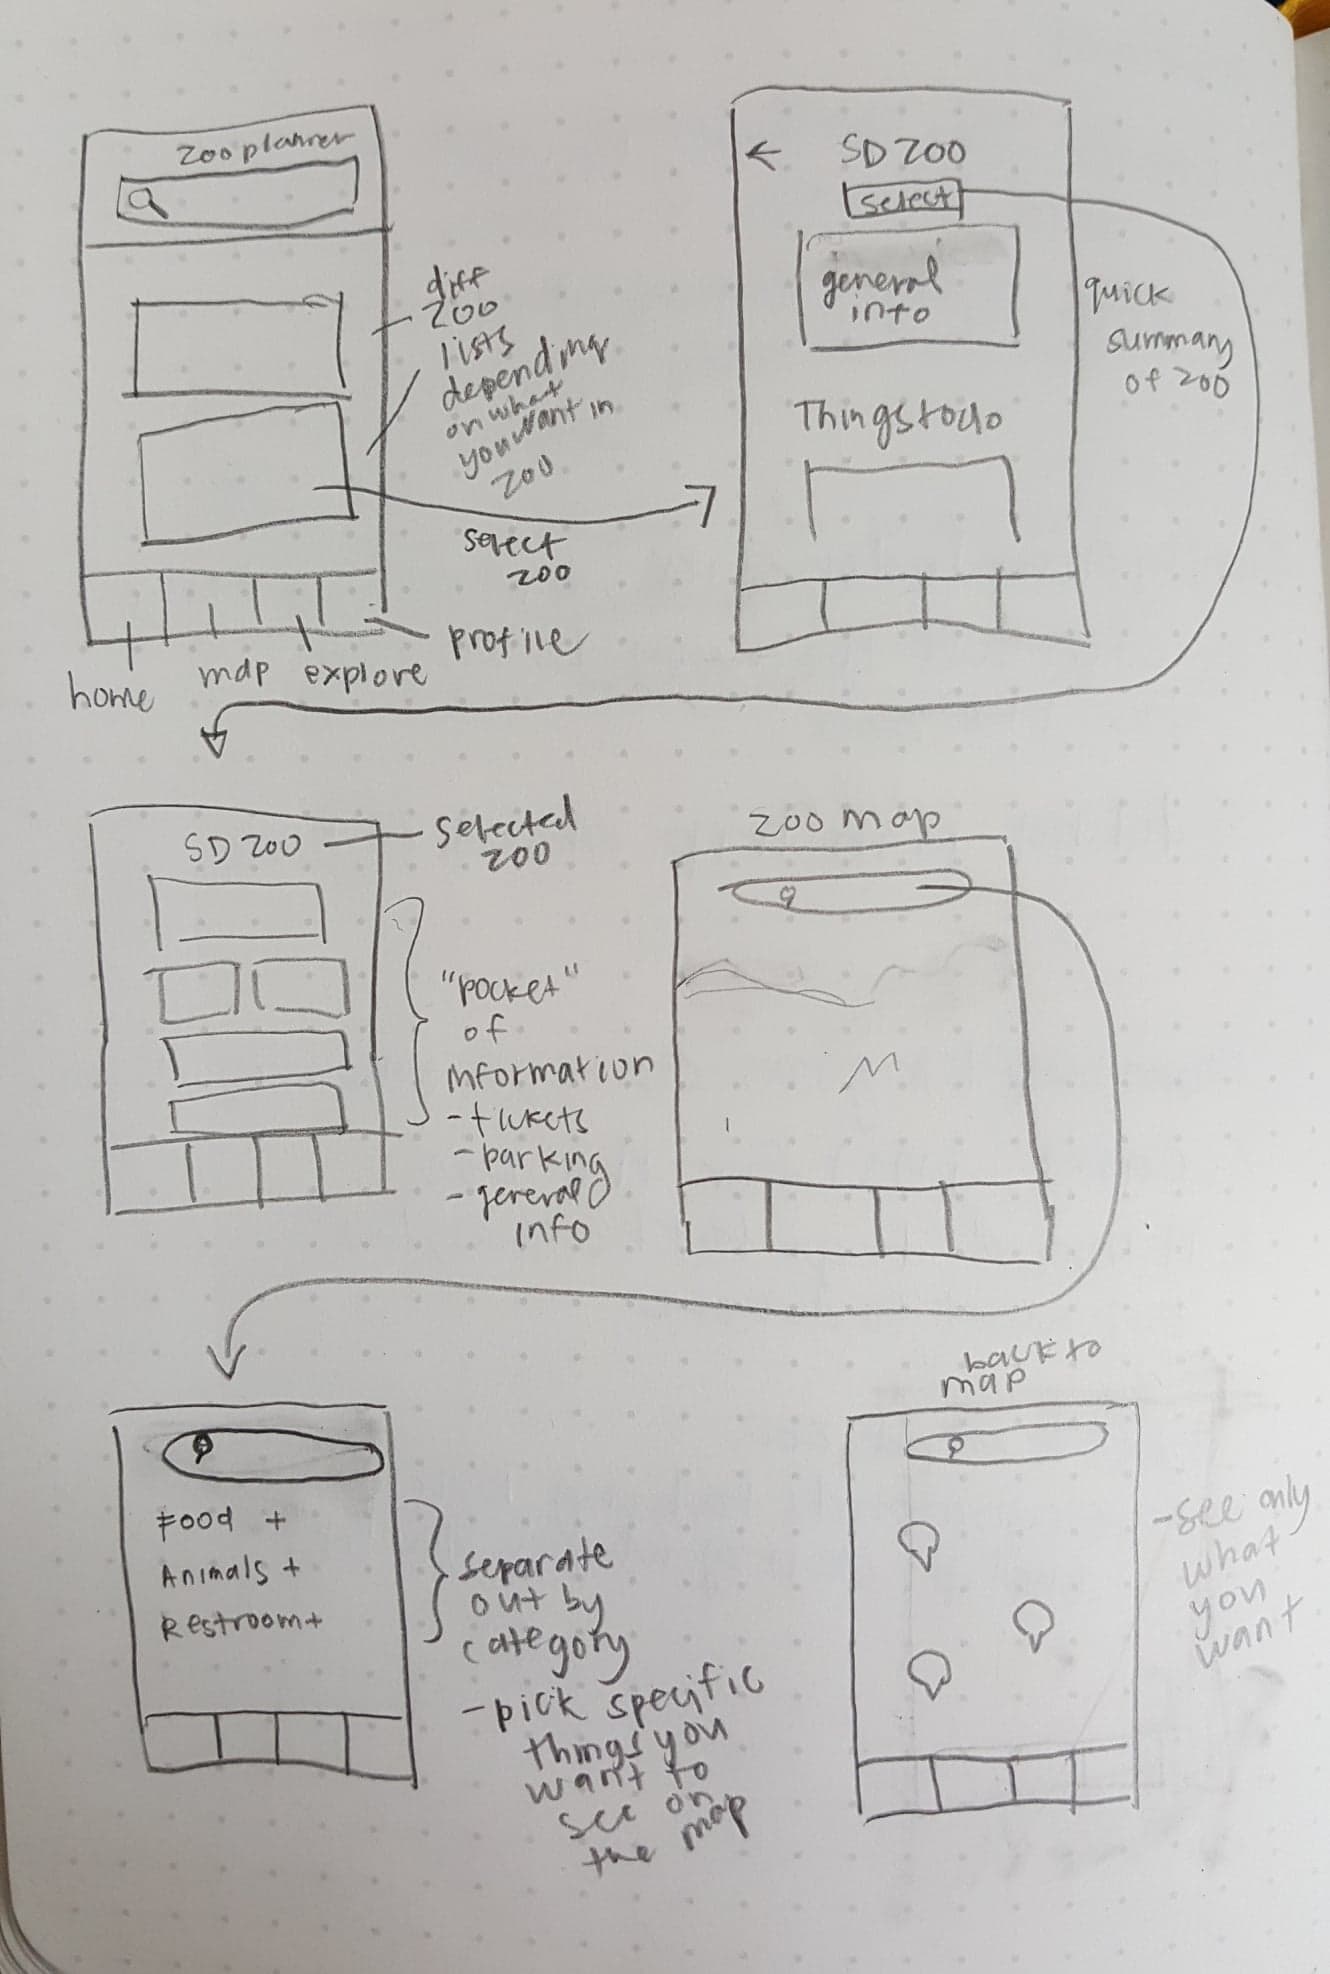 zoo planner
diff
zoo
lists
depending
on what
you want in
zoo
select
zoo
home
map
explore
profile
←
SD ZOO
select
general
info
Things to do
quick
summary
of zoo
SD ZOO
selected
zoo
"pocket"
of
information
- tickets
- parking
- general
info
zoo map
Food +
Animals +
Restroom +
separate
out by
category
- pick specific
things you
want to
see on
the map
back to
map
- see only
what
you
want